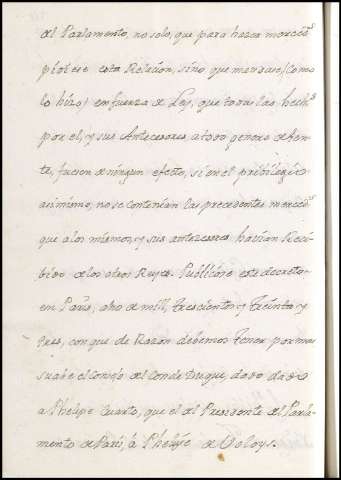 del Parlamento, no solo, que para hazer merced.s
pidiese esta Relacion, sino que mandase (como
lo hizo) en fuerza de Ley, que todas las hech.s
por el, y sus Antecesores, a todo genero de Gen-
te, fuesen de ningun efecto, si en el privilegio
asimismo, no se contenian las precedentes merced.s
que a los mismos, y sus antecesores havian Reci-
bido de los otros Reyes. Publicóse este decreto
en Paris, año de mill, trescientos, y treinta y
tres, con que de Razon debemos tener por mas
suabe el Consejo del Conde Duque, dado
a Phelipe Cuarto, que el del Presidente del Parla-
mento de Paris, à Phelipe de Valoys.